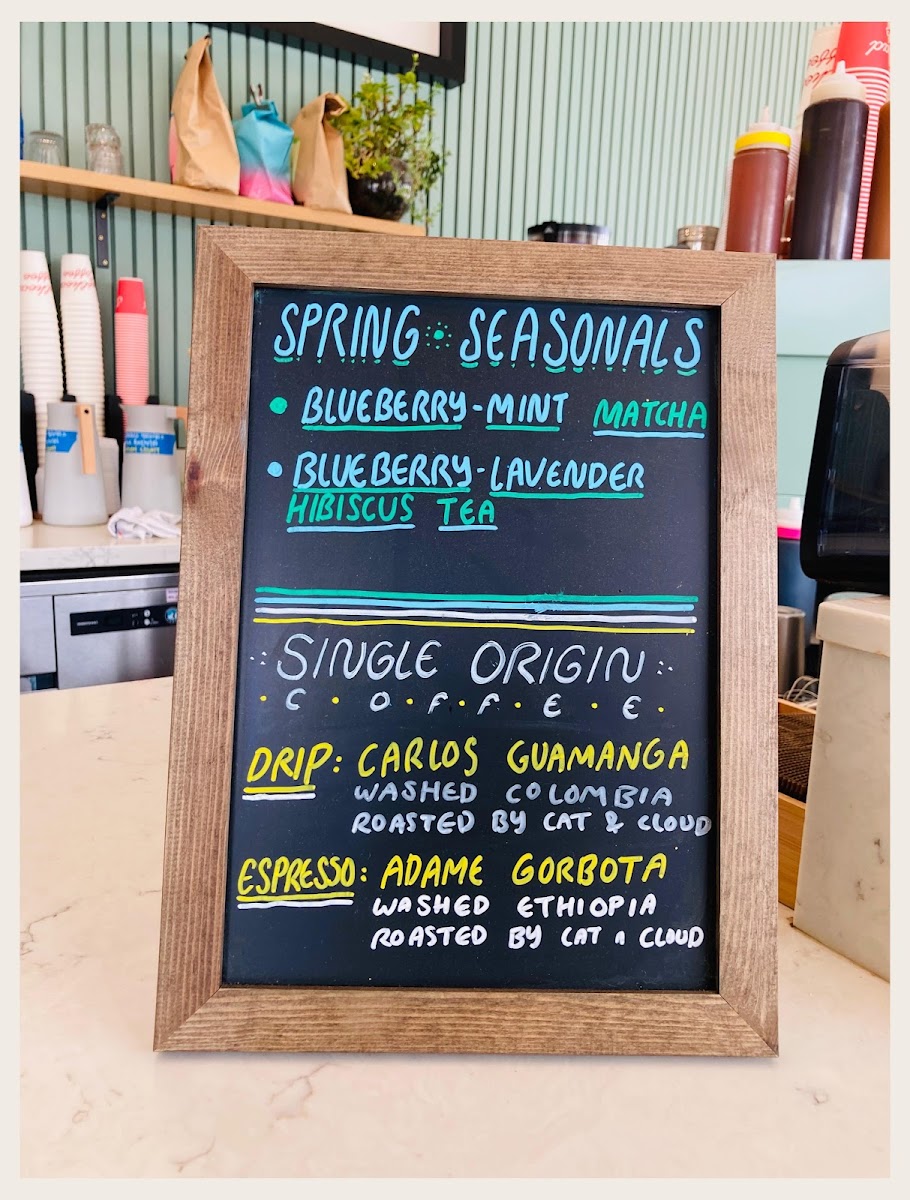 SPRING SEASONALS
• BLUEBERRY-MINT MATCHA
• BLUEBERRY-LAVENDER
HIBISCUS TEA
SINGLE ORIGIN
C • O • F • F • E • E
DRIP: CARLOS GUAMANGA
WASHED COLOMBIA
ROASTED BY CAT & CLOUD
ESPRESSO: ADAME GORBOTA
WASHED ETHIOPIA
ROASTED BY CAT n CLOUD